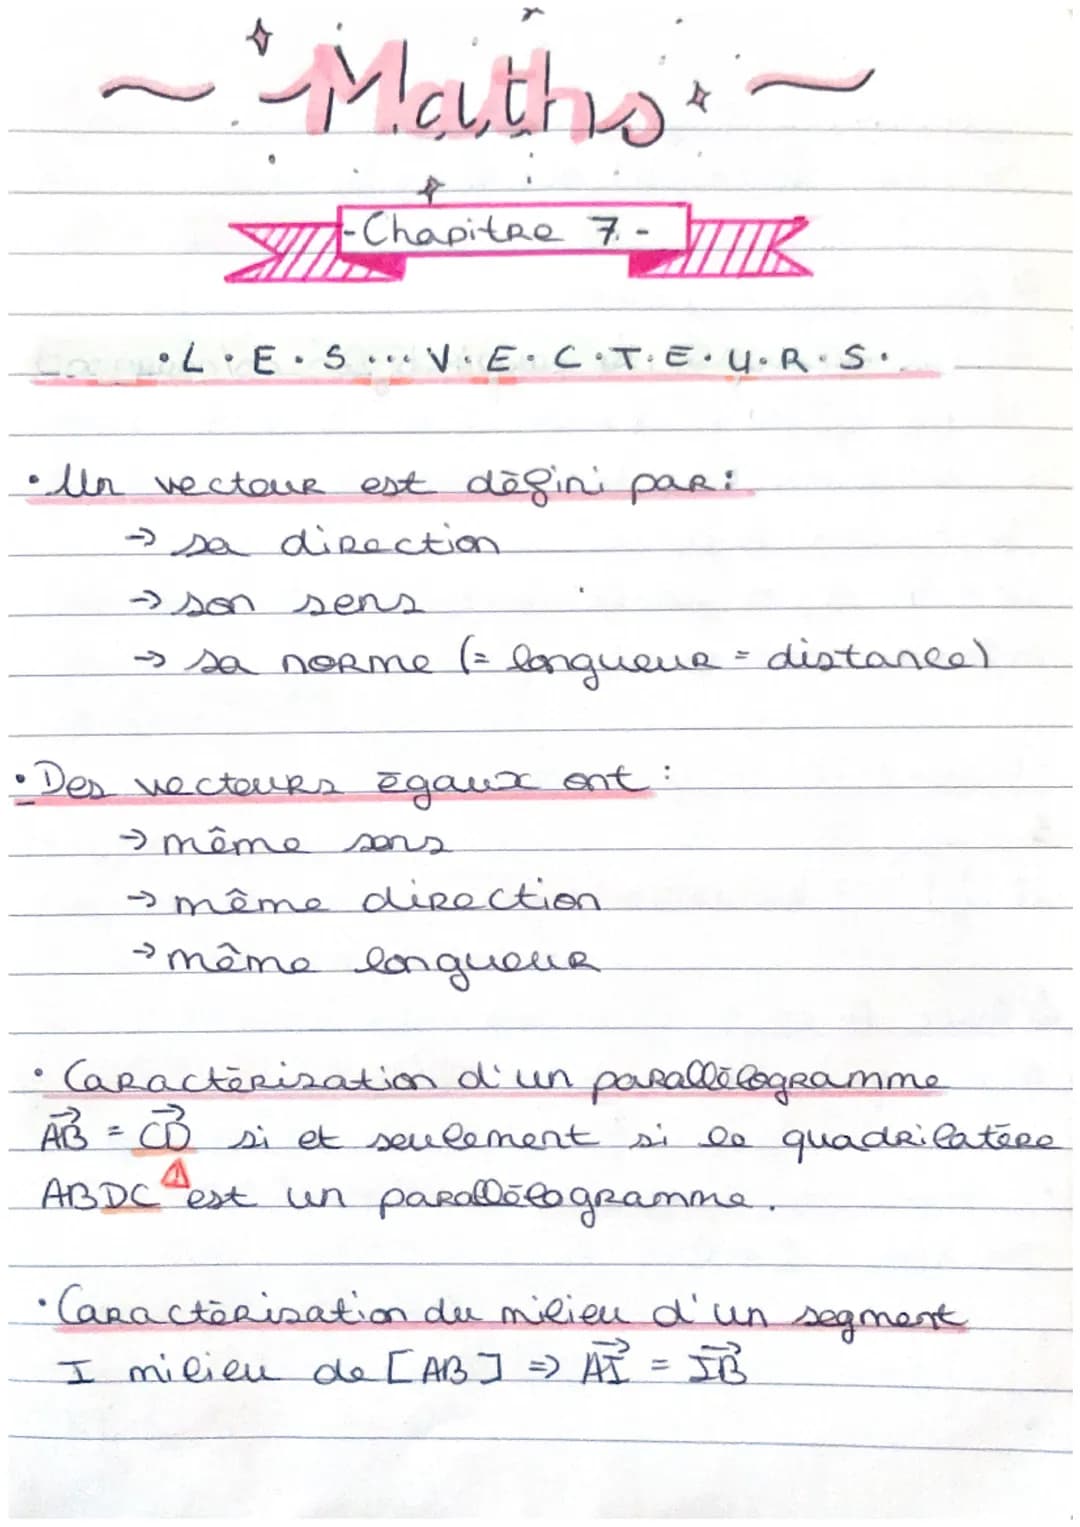 Maths
-Chapitre 7.-
•L•E•S•••V•E•C•T•E•U•R•S•
• Un vecteur est défini par:
→ sa direction
→ son sens
→ sa norme (= longueur = distance)
• Des vecteurs égaux ont :
→ même sens
→ même direction
→ même longueur
• Caractérisation d'un parallélogramme
A⃗B⃗ = C⃗D⃗ si et seulement si le quadrilatère
ABDC ⚠ est un parallélogramme.
• Caractérisation du milieu d'un segment
I milieu de [AB] => A⃗I⃗ = I⃗B⃗